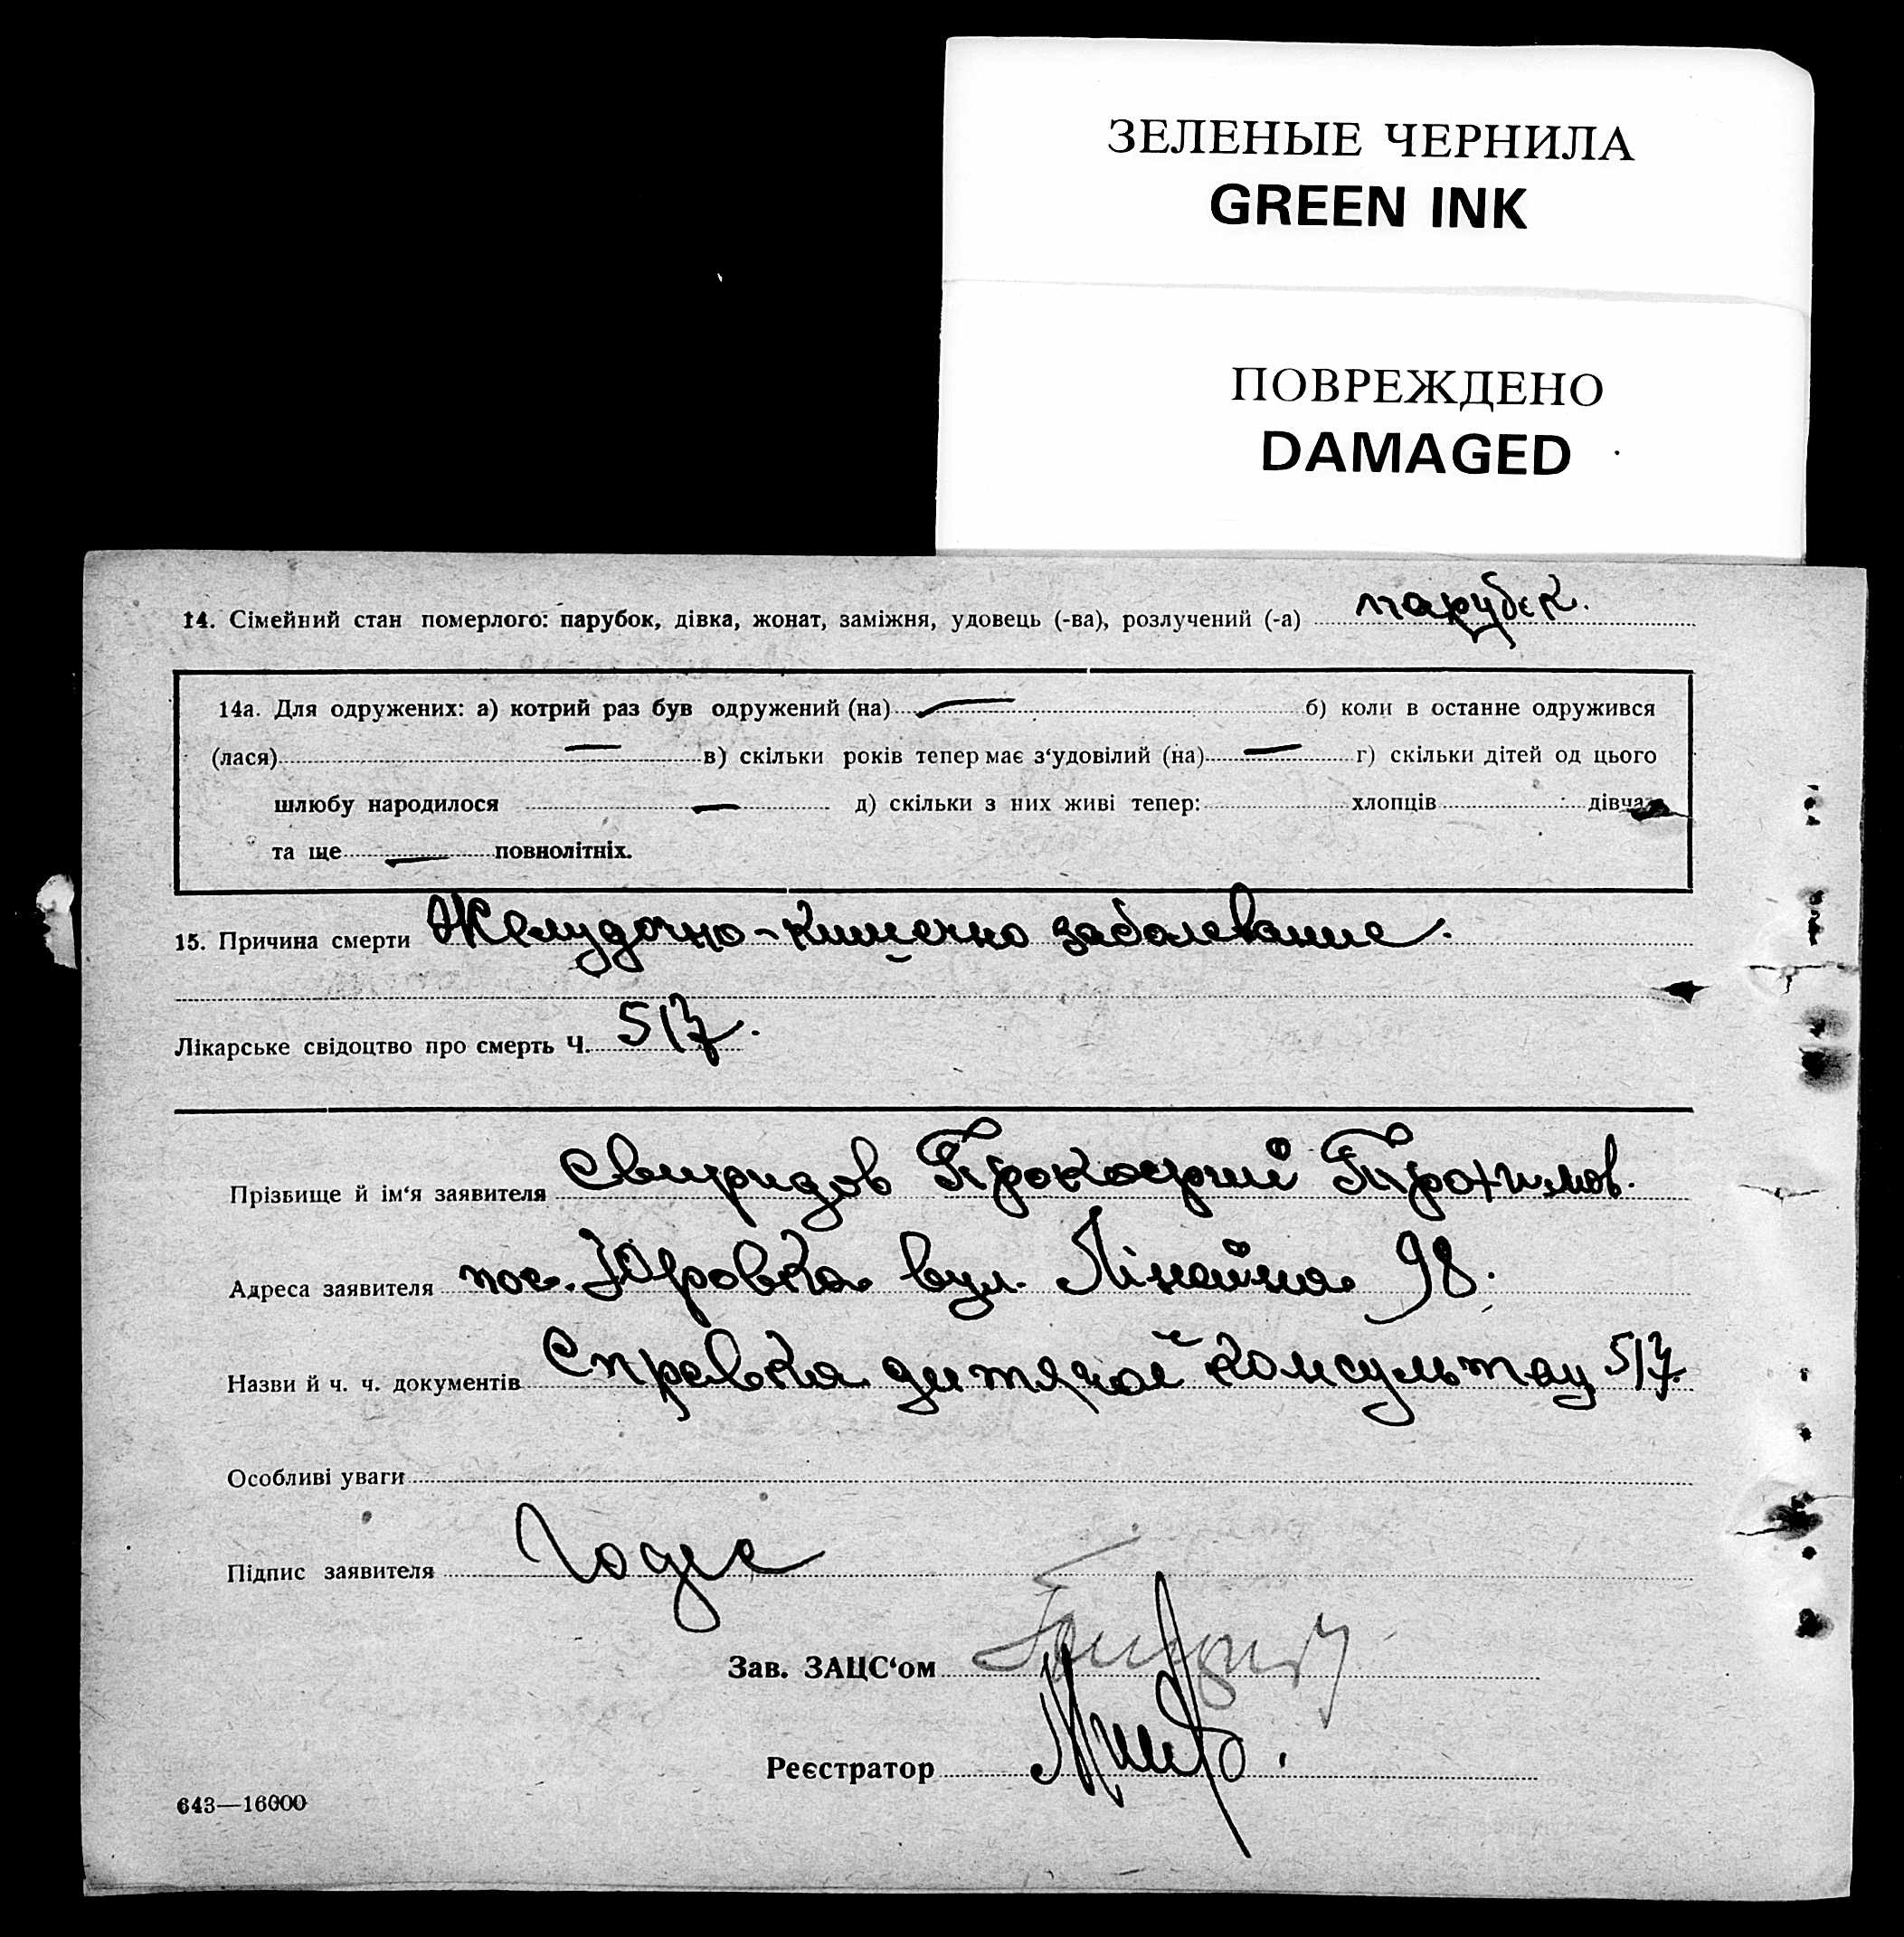 ЗЕЛЕНЫЕ ЧЕРНИЛА
GREEN INK
ПОВРЕЖДЕНО
DAMAGED
14. Сімейний стан померлого: парубок, дівка, жонат, заміжня, удовець (-ва), розлучений (-а) парубек.
14а. Для одружених: а) котрий раз був одружений (на) — б) коли в останне одружився
(лася) — в) скільки років тепер має з‘удовілий (на) — г) скільки дітей од цього
шлюбу народилося — д) скільки з них живі тепер: хлопців дівча
та ще — повнолітніх.
15. Причина смерти Желудочно-кишечно заболевание.
Лікарське свідоцтво про смерть Ч. 5/7.
Прізвище й ім‘я заявителя Свиридов Прокофий Трофимов.
Адреса заявителя пос. Юровка вул. Лінайная 98.
Назви й ч. ч. документів Справка дитячой консультац 5/7.
Особливі уваги
Підпис заявителя
Зав. ЗАЦС‘ом
Реєстратор
643—16000